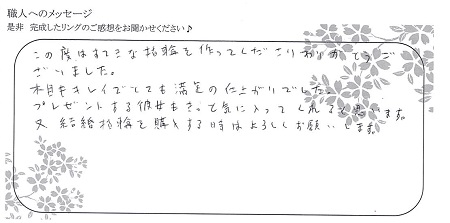 職人へのメッセージ
是非 完成したリングのご感想をお聞かせください♪
この度はすてきな指輪を作ってくださりありがとうご
ざいました。
木目もキレイでとても満足の仕上がりでした。
プレゼントする彼女もきっと気に入ってくれると思います。
又 結婚指輪を購入する時はよろしくお願いします。